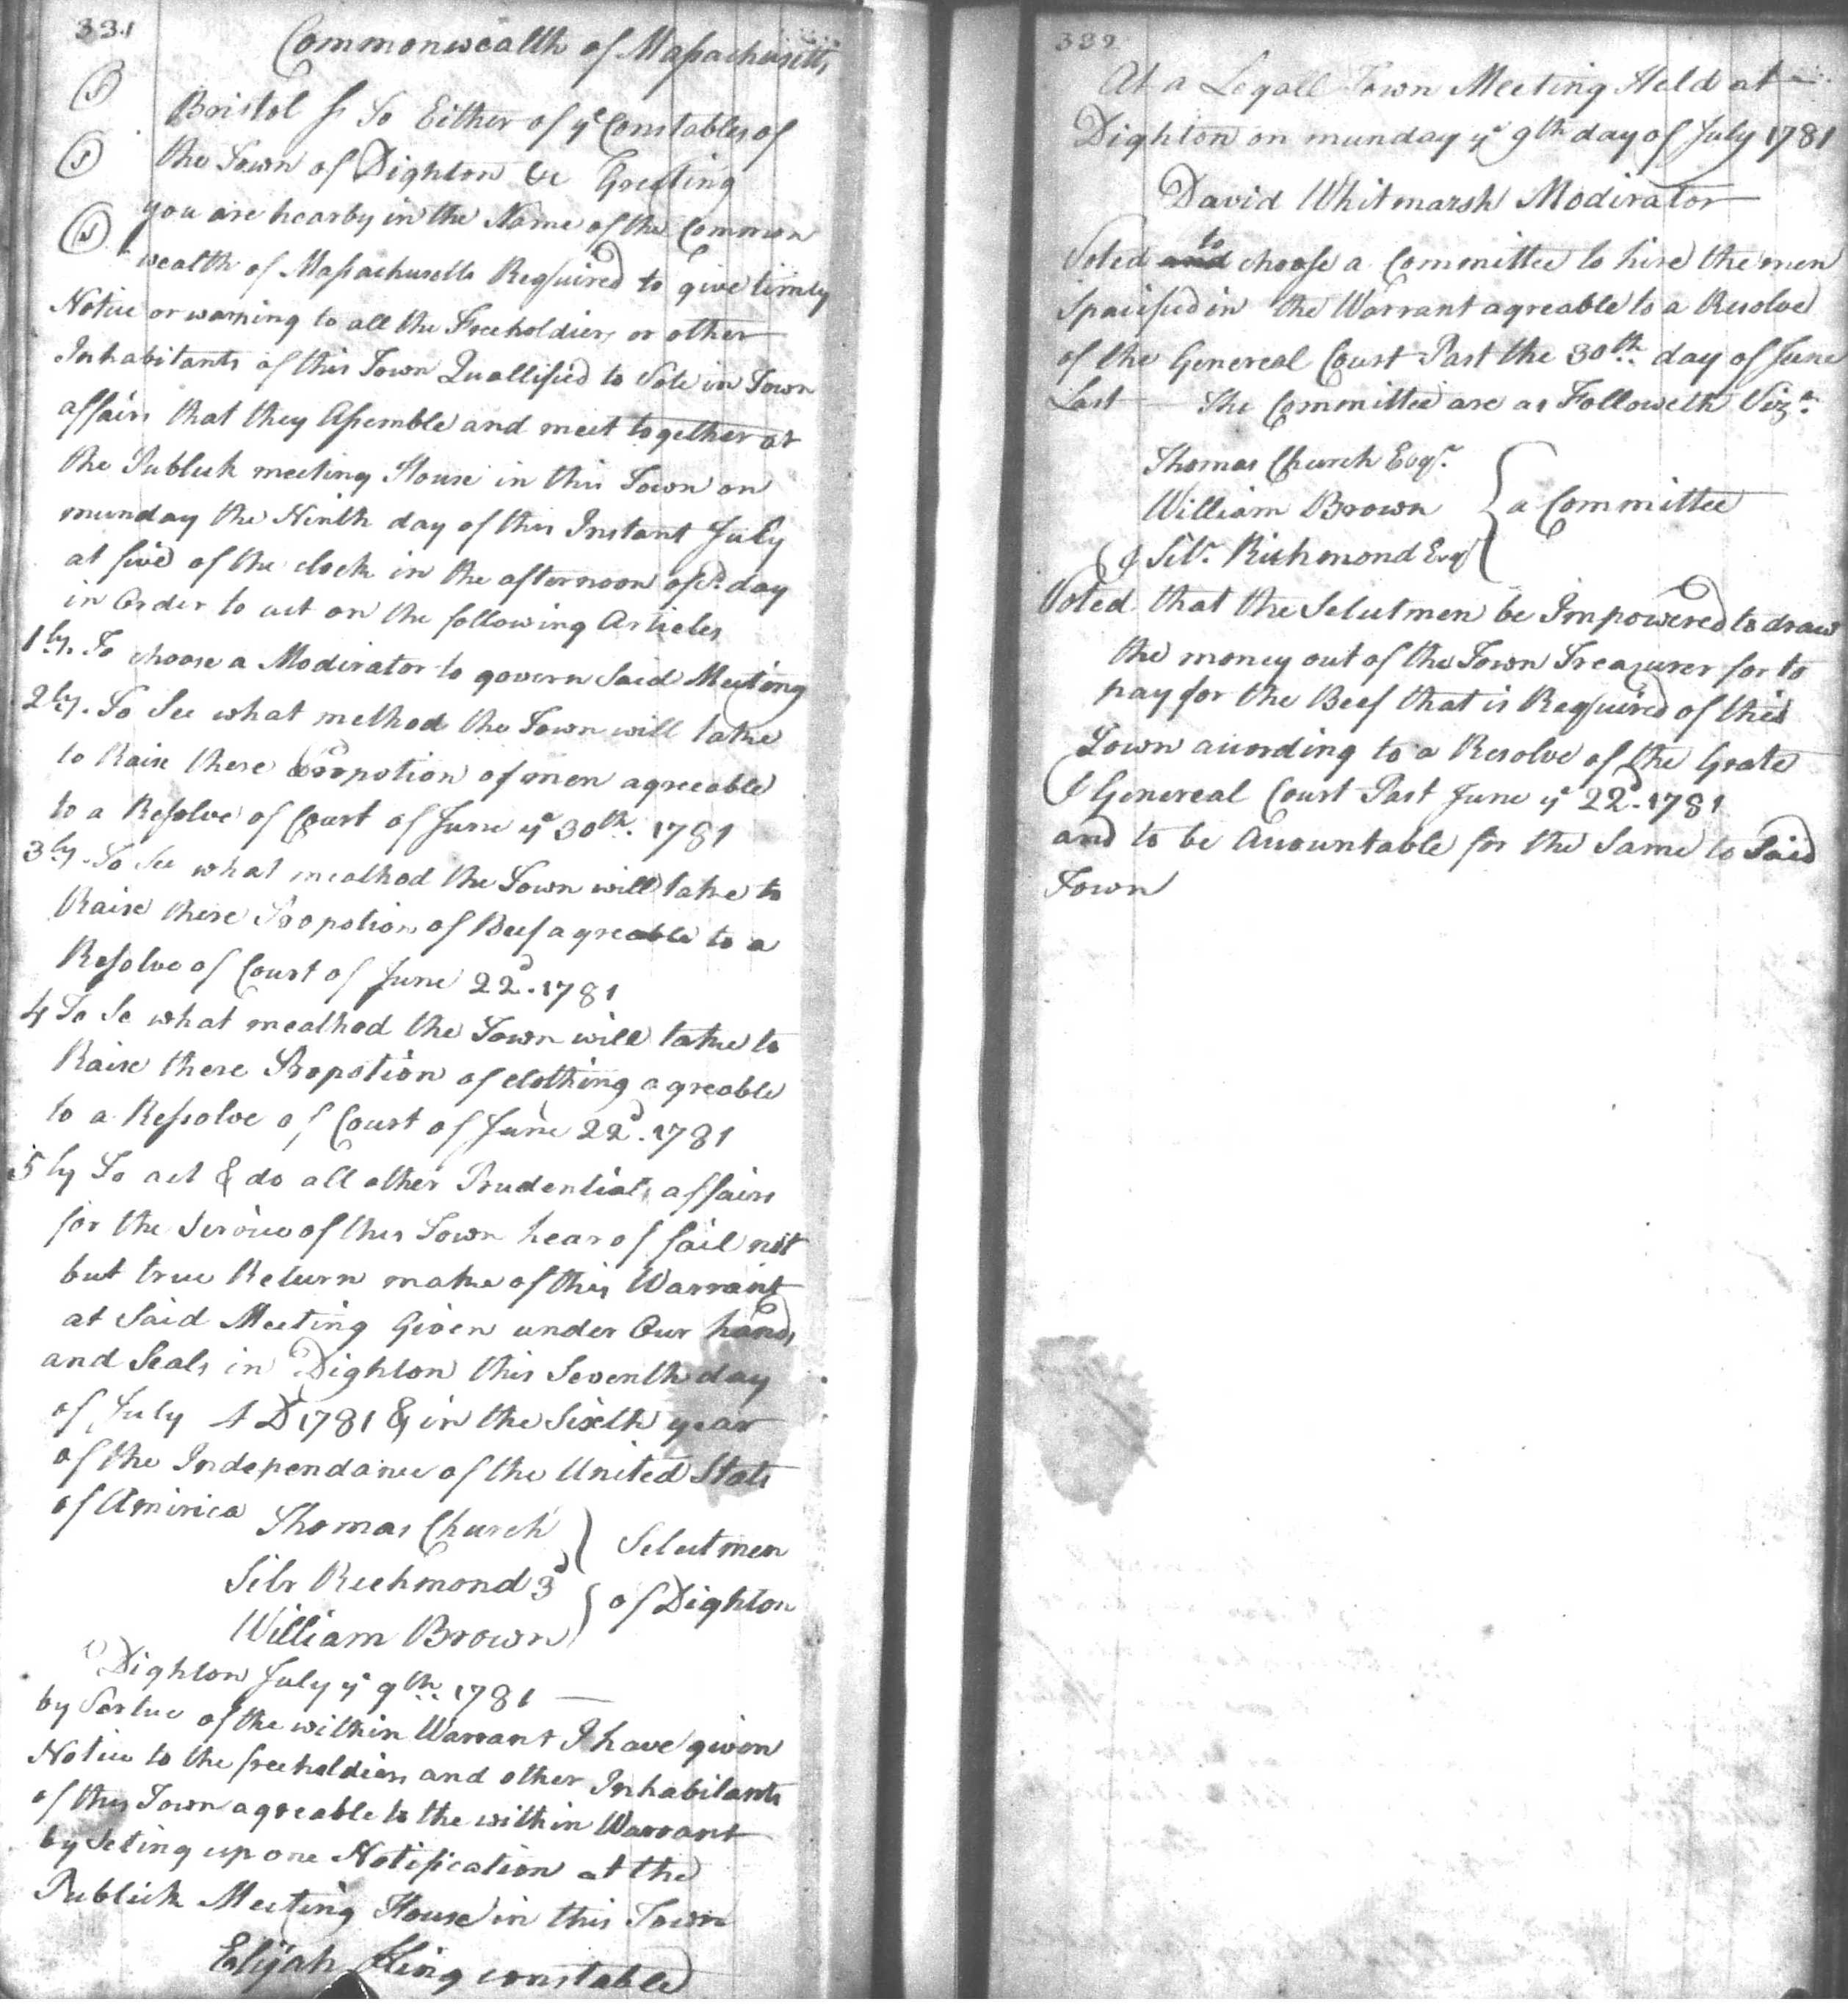 331
Commonwealth of Massachusetts
Bristol ss To Either of ye Constables of
the Town of Dighton &c Greeting
you are hearby in the Name of the Common
wealth of Massachusetts Required to give timly
Notice or warning to all the Freeholders or other
Inhabitants of this Town Quallified to Vote in Town
affairs that they Assemble and meet together at
the Publick meeting House in this Town on
munday the Ninth day of this Instant July
at five of the clock in the afternoon of sd. day
in Order to act on the following Articles
1ly. To choose a Modirator to govern Said Meeting
2ly. To See what method the Town will take
to Raise there Propotion of men agreeable
to a Resolve of Court of June ye 30th. 1781
3ly. To See what meathod the Town will take to
Raise there Propotion of Beef agreable to a
Resolve of Court of June 22d. 1781
4 To Se what meathod the Town will take to
Raise there Propotion of clothing agreable
to a Resolve of Court of June 22d. 1781
5ly To act & do all other Prudential affairs
for the Service of this Town hear of fail not
but true Return make of this Warrant
at Said Meeting Given under Our hands
and Seals in Dighton this Seventh day
of July AD 1781 & in the Sixth year
of the Independance of the United Stats
of Amirica Thomas Church
Silv Richmond 3d
William Brown
Selectmen
of Dighton
Dighton July ye 9th. 1781
by Vertue of the within Warrant I have given
Notice to the freeholders and other Inhabitants
of this Town agreable to the within Warrant
by Seting up one Notification at the
Publick Meeting House in this Town
Elijah King constable
332
At a Legall Town Meeting Held at
Dighton on munday ye 9th day of July 1781
David Whitmarsh Modirator
Voted and to choose a Committee to hire the men
Spacified in the Warrant agreable to a Resolve
of the Genereal Court Past the 30th. day of June
Last The Committee are as Followeth Viz.
Thomas Church Esqr.
William Brown
& Silr. Richmond Esqr
a Committee
Voted that the Selectmen be Impowered to draw
the money out of the Town Treazurer for to
pay for the Beef that is Required of this
Town according to a Resolve of the Grate
& Genereal Court Past June ye 22d. 1781
and to be Accountable for the Same to Said
Town